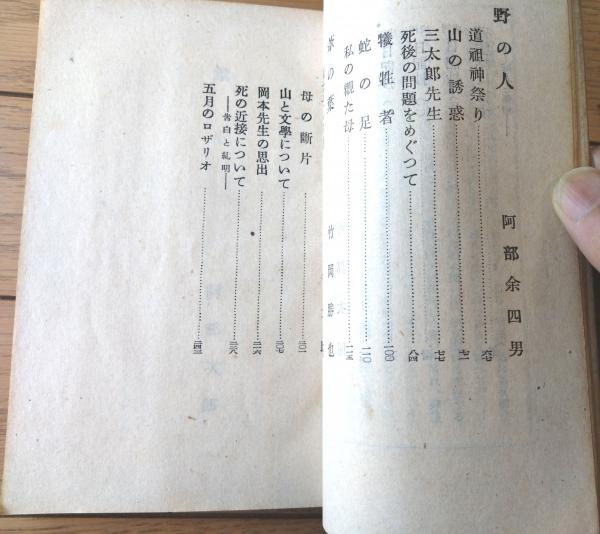 野の人　阿部余四男
道祖神祭り…………六七
山の誘惑…………七一
三太郎先生…………七七
死後の問題をめぐつて…………八四
犠牲者…………一〇〇
蛇の足…………一一〇
私の觀た母
竹岡勝也
母の斷片
山と文學について
岡本先生の思出
死の近接について
——告白と糺明——
五月のロザリオ